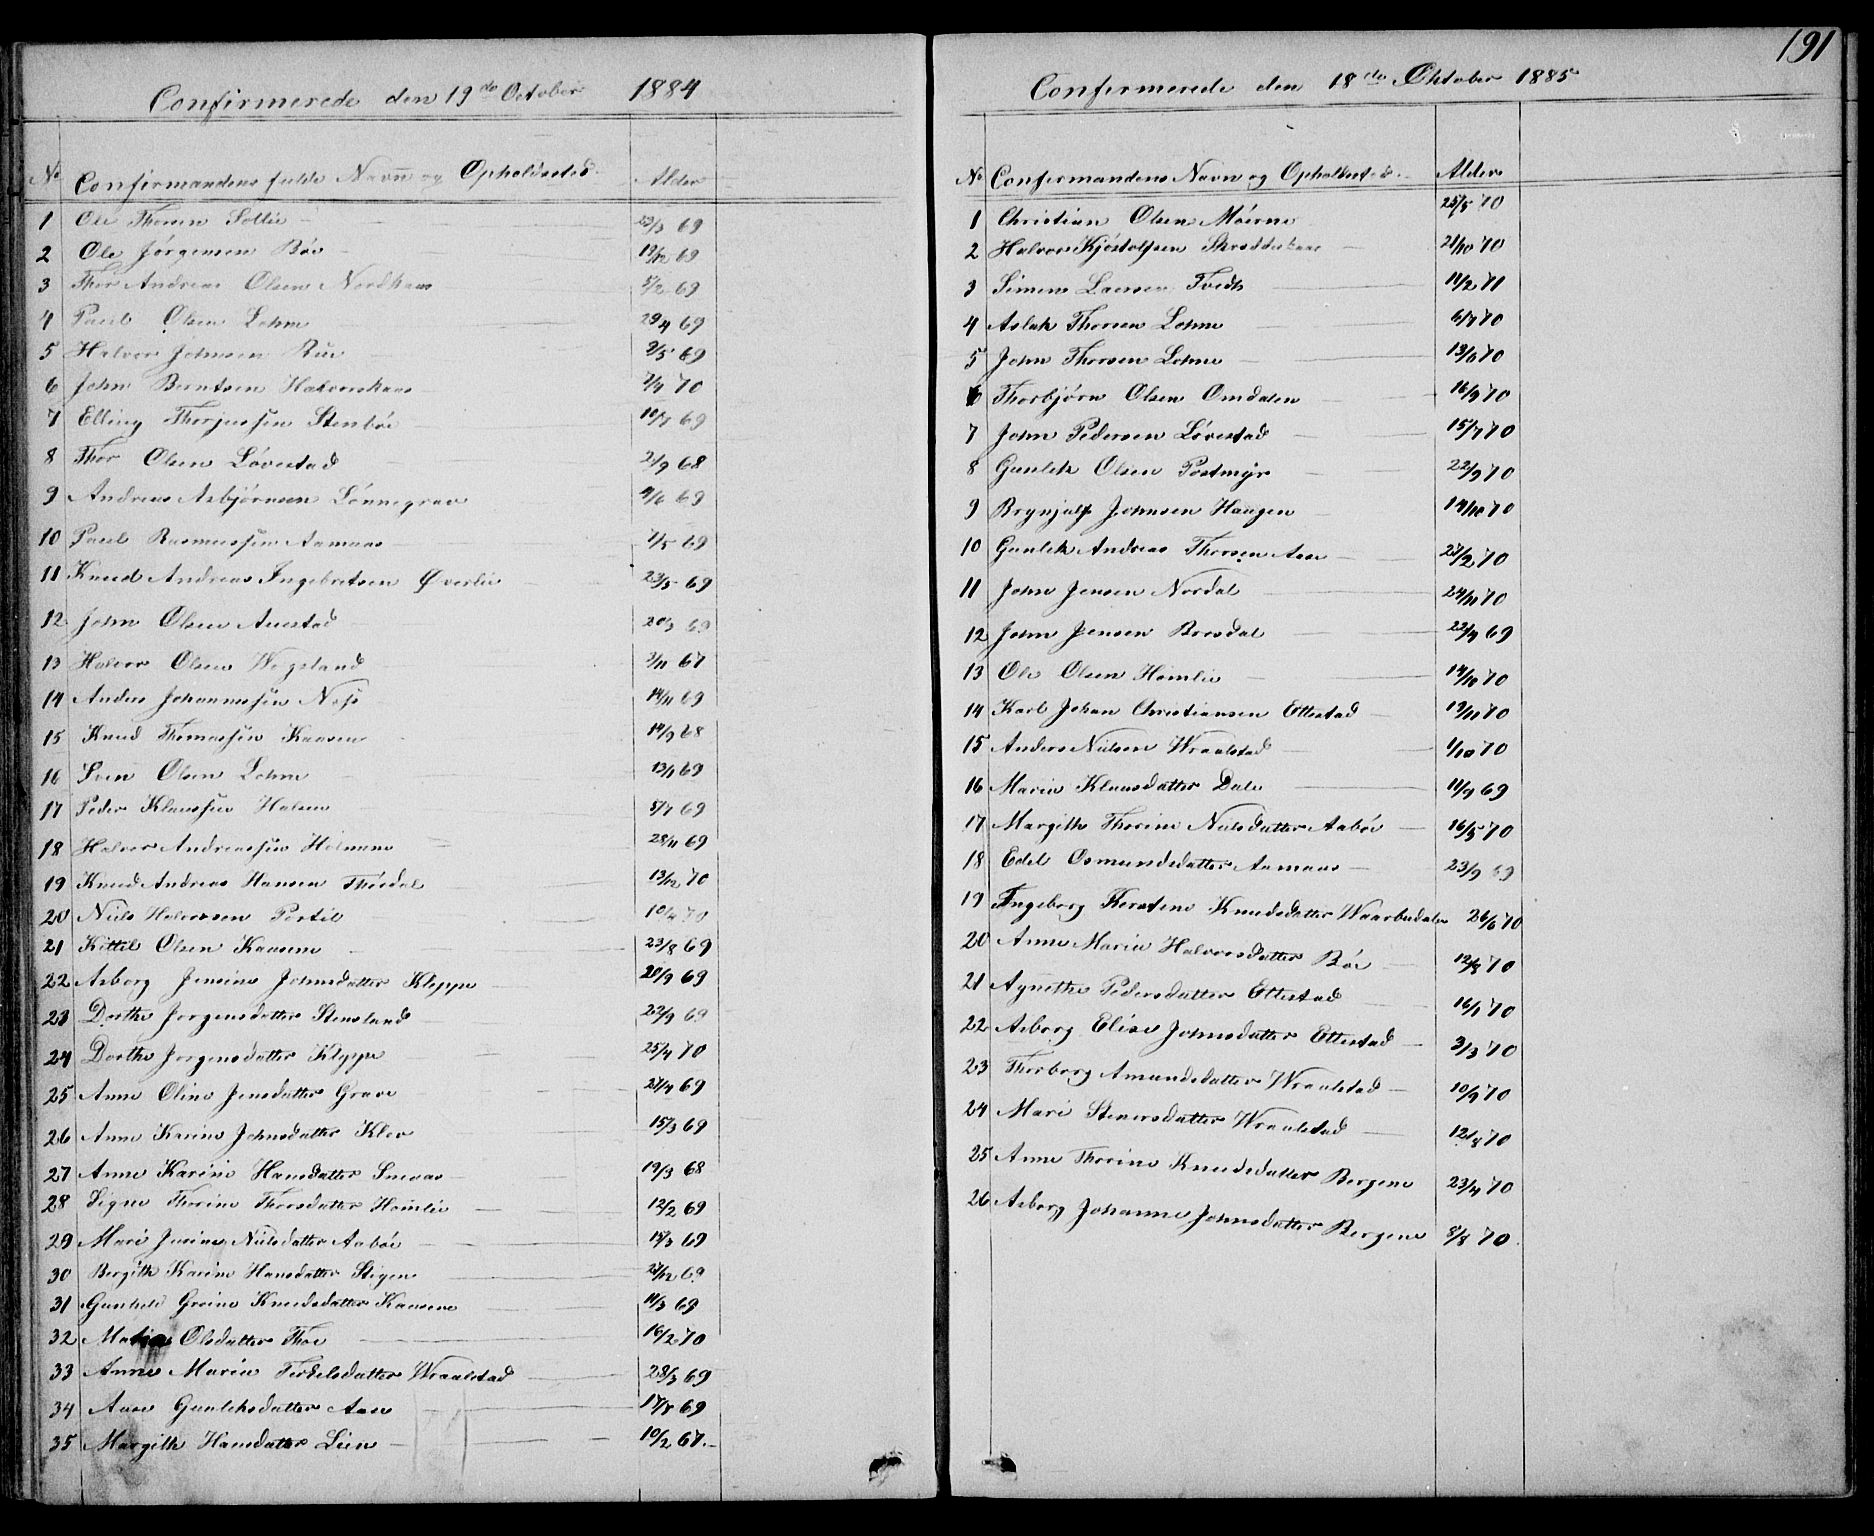 191
Confirmerede den 19de October 1884
No Confirmandens fulde Navn og Opholdssted. Alder
1 Ole Thorsen Sollie 23/3 69
2 Ole Jörgensen Böe 19/12 69
3 Thor Andreas Olsen Nordkaas 5/2 69
4 Paul Olsen Lohne 29/4 69
5 Halvor Johnsen Rue 2/5 69
6 John Berntsen Halvorskaas 70
7 Elling Therjussen Stenböe 69
8 Thor Olsen Lövestad 21/9 68
9 Andreas Asbjörnsen Lönnegrav 69
10 Paul Rasmussen Aamaas 69
11 Knud Andreas Ingebretsen Överlie 23/5 69
12 John Olsen Auestad 20/3 69
13 Halvor Olsen Wegsland 67
14 Anders Johannessen Næss 14/11 69
15 Knud Thomassen Kaasen 14/9 68
16 Sven Olsen Lohne 69
17 Peder Klaussen Halsen 5/7 69
18 Halvor Andreassen Holmene 28/11 69
19 Knud Andreas Hansen Thördal 13/12 70
20 Niels Halvorsen Portil 10/4 70
21 Kittil Olsen Kaasene 23/8 69
22 Asborg Jensine Johnsdatter Kleppe 20/9 69
23 Dorthe Jorgensdatter Stensland 22/9 69
24 Dorthe Jorgensdatter Kleppe 25/4 70
25 Anne Oline Jensdatter Grave 27/4 69
26 Anne Karine Johnsdatter Klev 15/3 69
27 Anne Karine Hansdatter Snevaas 19/3 68
28 Signe Thorine Thorsdatter Heimlie 12/2 69
29 Mari Jurine Nielsdatter Aaböe 69
30 Bergith Karine Hansdatter Stigen 69
31 Gunhild Gurine Knudsdatter Kaasene 11/3 69
32 Olsdatter Thoe 16/2 70
33 Anne Marie Terkelsdatter Wraalstad 28/3 69
34 Aase Gunleksdatter Aase 17/8 69
35 Margith Hansdatter Lien 10/2 67.
Confirmerede den 18de Oktober 1885
No Confirmandens Navn og Opholdssted. Alder
1 Christian Olsen Möerne 25/8 70
2 Halvor Kjöstolfsen Skrædderhaas 21/10 70
3 Simen Larsen Tvedt 11/2 71
4 Aslak Thorsen Lohne 6/7 70
5 John Thorsen Lohne 13/6 70
6 Thorbjörn Olsen Omdalen 16/9 70
7 John Pedersen Lövestad 15/7 70
8 Gunlek Olsen Postmyr 22/9 70
9 Brynjulf Johnsen Haugen 14/10 70
10 Gunlek Andreas Thorsen Aase 23/2 70
11 John Jensen Nordal 24/11 70
12 John Jensen Boesdal 22/4 69
13 Ole Olsen Heimlie 14/10 70
14 Karl Johan Christiansen Ettestad 19/11 70
15 Anders Nielsen Wraalstad 1/10 70
16 Marie Klausdatter Dale 11/9 69
17 Margith Thorine Nielsdatter Aaböe 16/5 70
18 Edel Osmundsdatter Aamaas 23/9 69
19 Ingeborg Kerstine Knudsdatter Waarbudalen 26/6 70
20 Anne Marie Halvorsdatter Böe 12/8 70
21 Agnethe Pedersdatter Ettestad 16/1 70
22 Asborg Elise Johnsdatter Ettestad 3/3 70
23 Thorborg Amundsdatter Wraalstad 10/9 70
24 Mari Stenersdatter Wraalstad 12/8 70
25 Anne Thorine Knudsdatter Bergene 23/4 70
26 Asborg Johanne Johnsdatter Bergene 8/8 70.